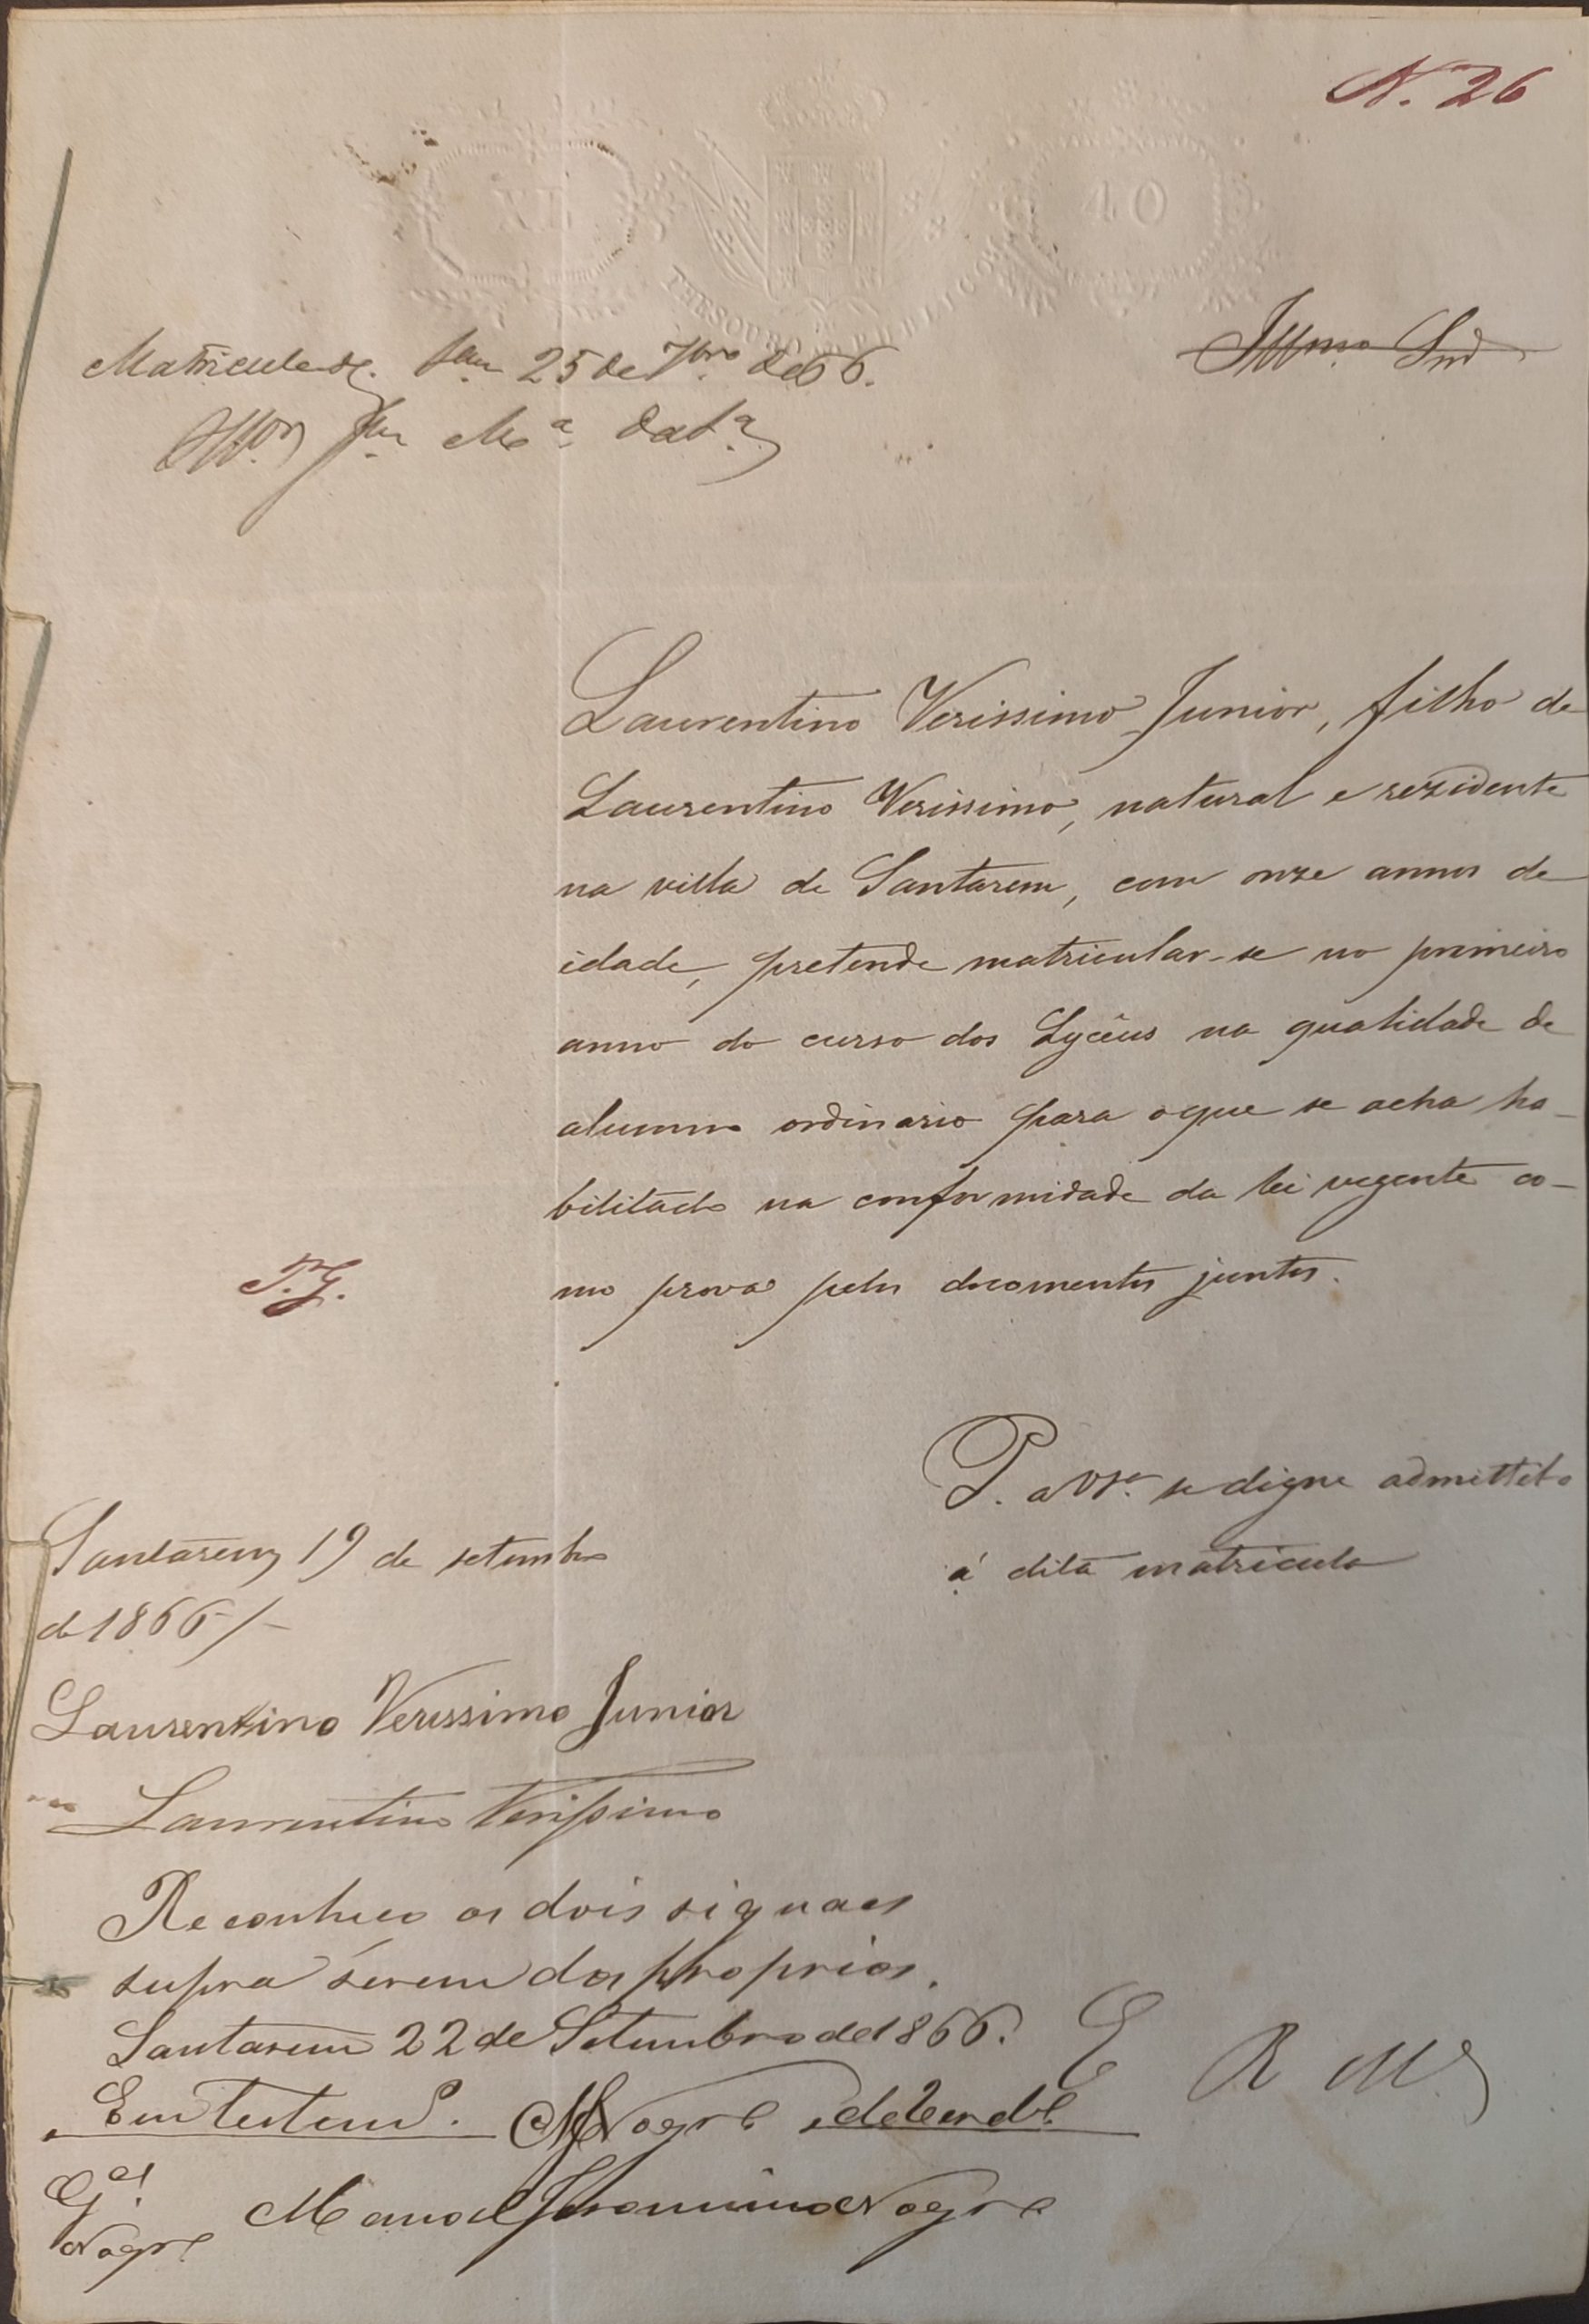 N. 26
XL
40
THESOURO PUBLICO
Illmo Snr
Matricule-se. 25 de 7bro de 66.
Laurentino Verissimo Junior, filho de
Laurentino Verissimo, natural e rezidente
na villa de Santarem, com onze annos de
idade, pretende matricular-se no primeiro
anno do curso dos Lycêus na qualidade de
alumno ordinario para o que se acha ha-
bilitado na conformidade da lei vegente co-
mo prova pelos documentos juntos.
T.G.
P. a VSa. se digne admittilo
á dita matricula
Santarem 19 de setembro
de 1866/-
Laurentino Verissimo Junior
Laurentino Verissimo
Reconheço os dois signaes
supra serem dos proprios.
Santarem 22 de Setembro de 1866.
E R M
Em testemo. de verdde
Manoel Jeronimo Nogre
Nogre